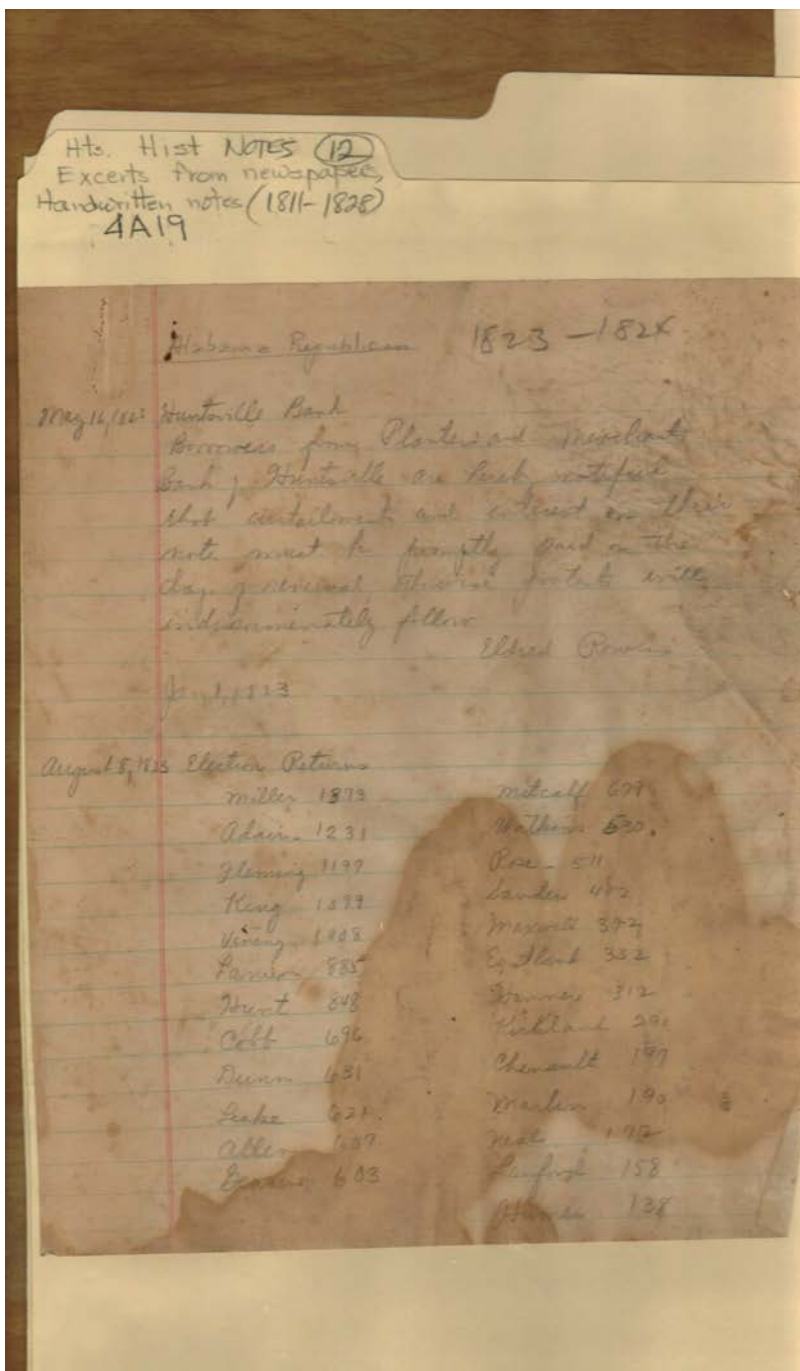 Hts. Hist NOTES (12)
Excerts from newspapers,
Handwritten notes (1811-1828)
4A19
Alabama Republican 1823-1824
May 16, 1823 Huntsville Bank
Borrowers from Planters and Merchants
Bank of Huntsville are hereby notified
that curtailments and interest on their
note must be promptly paid on the
day of renewal otherwise protests will
indiscriminately follow
Eldred
Jan 1, 1823
August 8, 1823 Election Returns
Miller 1373
Adair - 1231
Fleming 1197
King 1099
Vining 1008
885
Hunt 848
Cobb 696
Dunn 631
Leake 621
Allen 609
603
Metcalf 677
Watkins 530.
Rose - 511
Sanders 402
Maxwell 392
Eastland 332
312
Kirkland
Chenault 197
Martin 190
Neal 172
Lanford 158
138